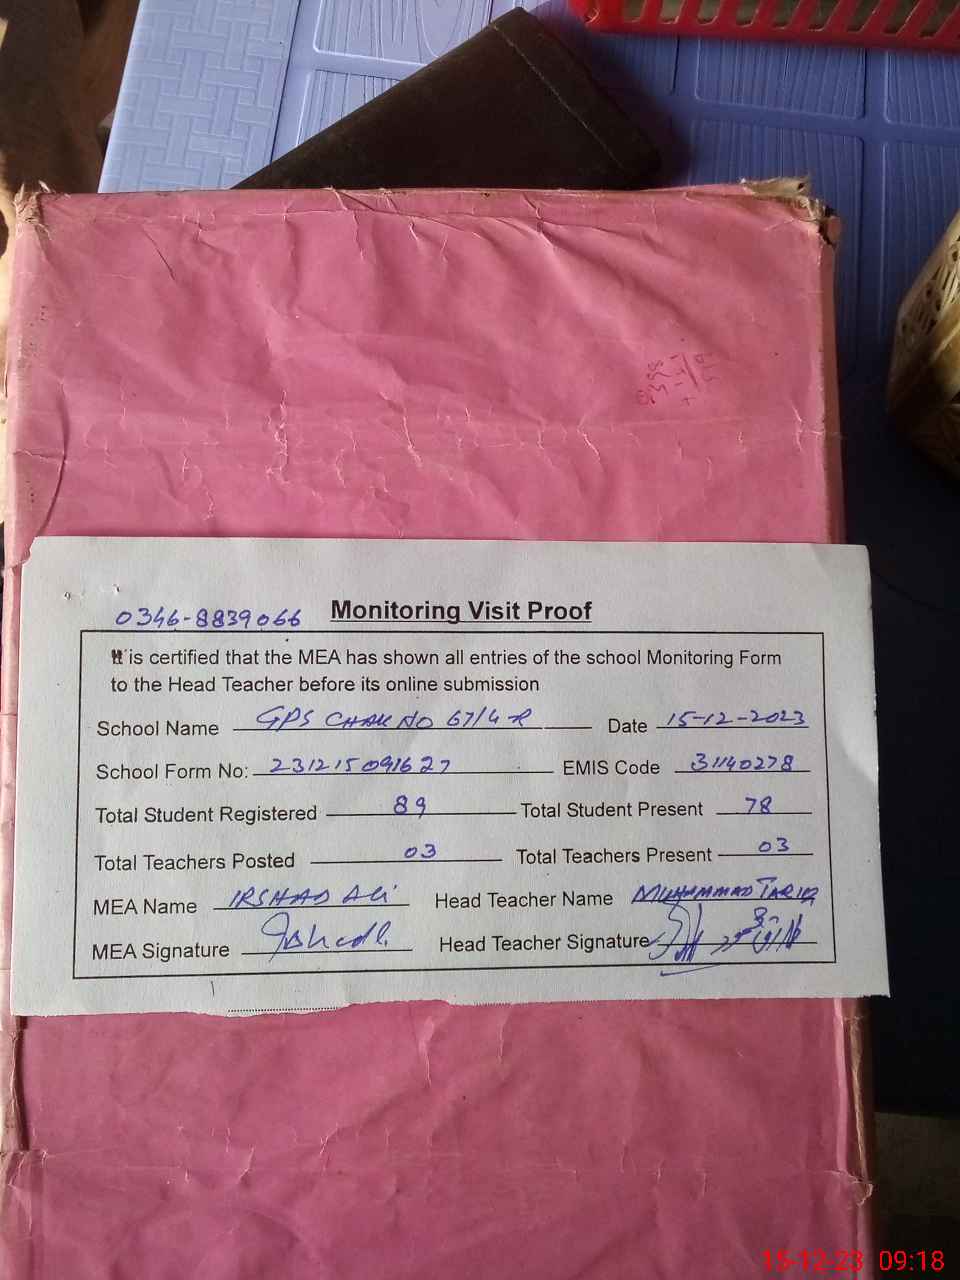 0346-8839066
Monitoring Visit Proof
It is certified that the MEA has shown all entries of the school Monitoring Form
to the Head Teacher before its online submission
School Name GPS CHAK NO 67/4-R Date 15-12-2023
School Form No: 231215091627 EMIS Code 31140278
Total Student Registered 89 Total Student Present 78
Total Teachers Posted 03 Total Teachers Present 03
MEA Name IRSHAD Ali Head Teacher Name MUHAMMAD TARIQ
MEA Signature Head Teacher Signature
15-12-23 09:18